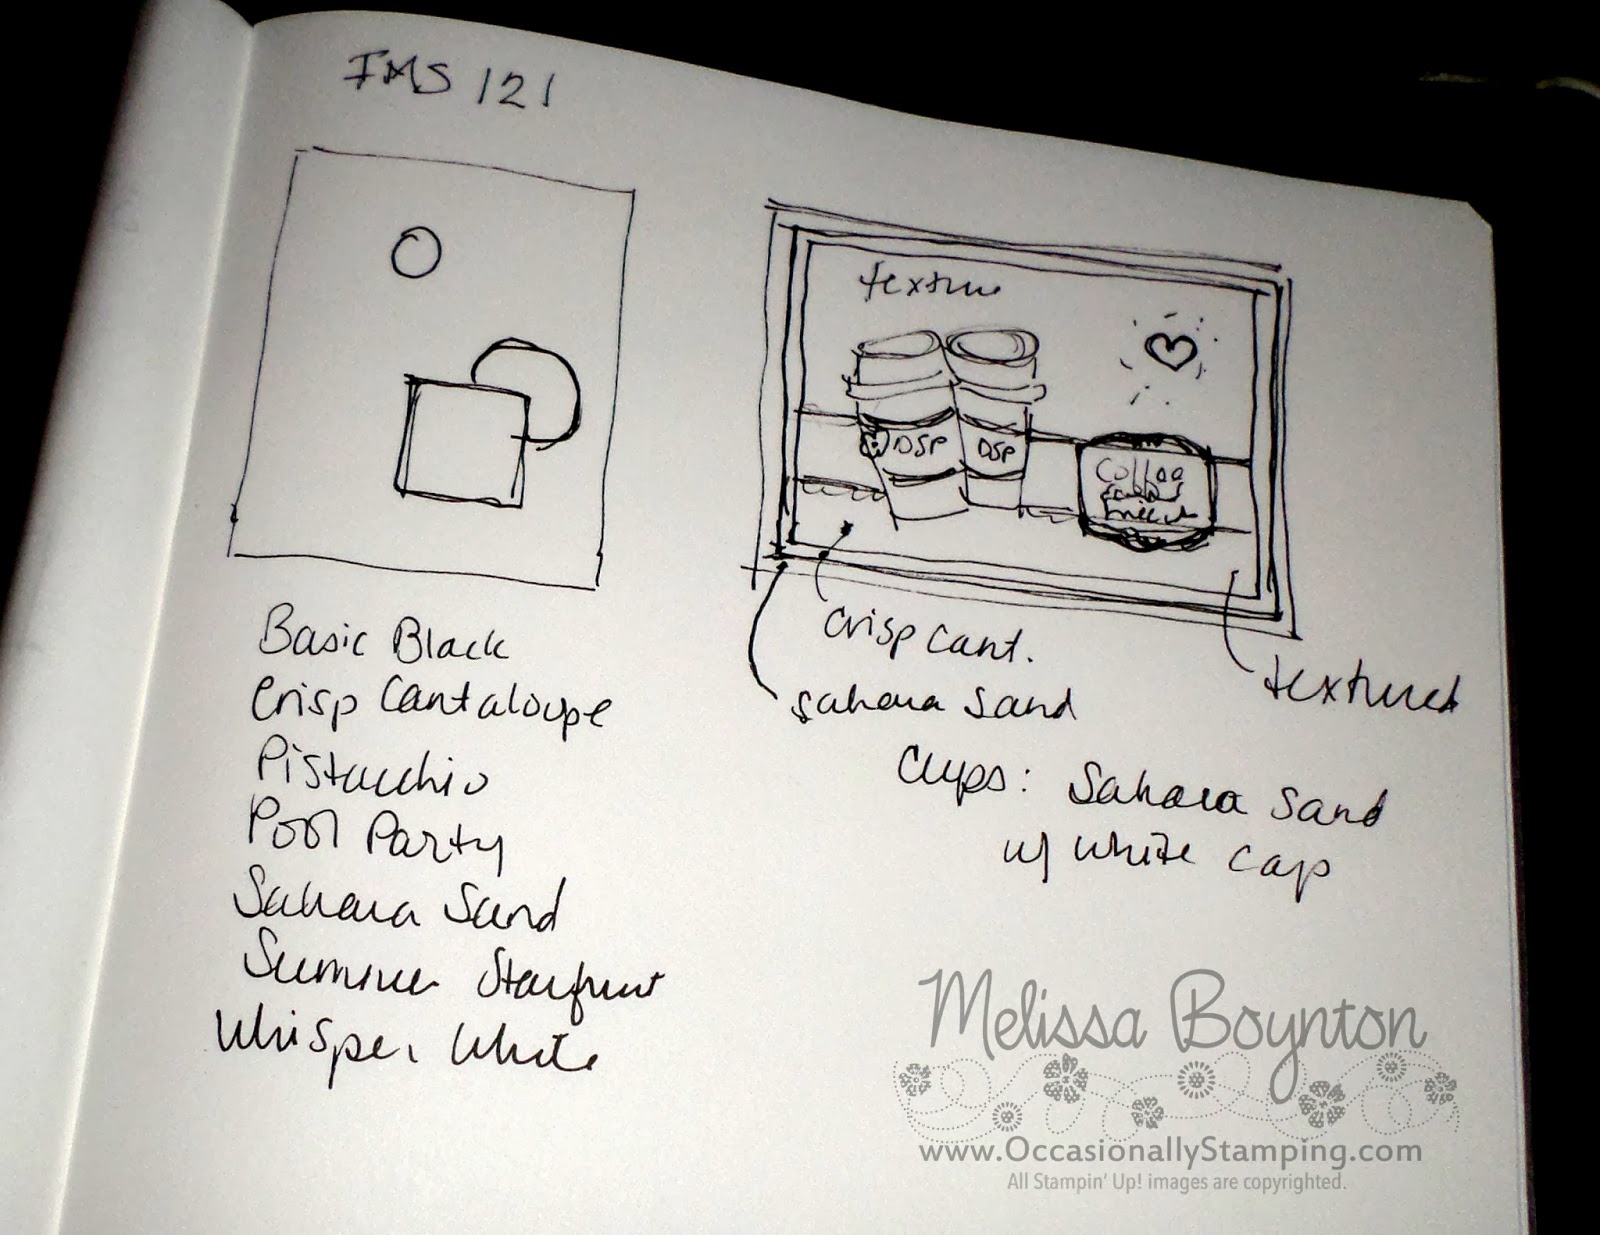 FMS 121
texture
DSP
DSP
Coffee
Crisp Cant.
Sahara Sand
textured
Cups: Sahara Sand
w/ white cap
Basic Black
Crisp Cantaloupe
Pistacchio
Pool Party
Sahara Sand
Summer Starfruit
Whisper White
Melissa Boynton
www.OccasionallyStamping.com
All Stampin' Up! images are copyrighted.